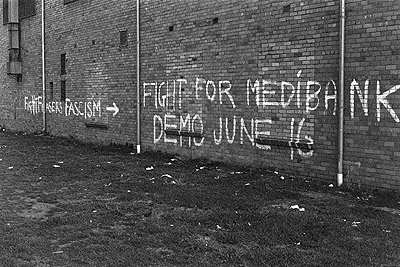 FIGHT FRASERS FASCISM →
FIGHT FOR MEDIBANK
DEMO JUNE 16